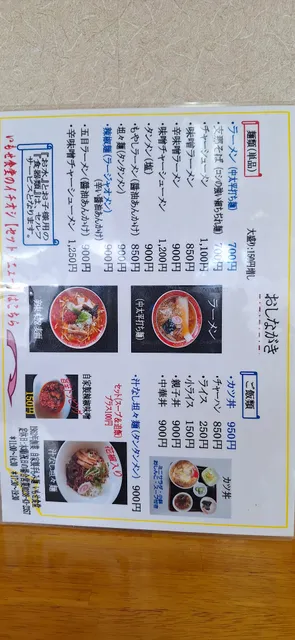 おしながき
麺類(単品) 大盛り150円増し
・ラーメン(中太平打ち麺) 700円
・チャーシューメン 1,100円
・味噌ラーメン 850円
・辛味噌ラーメン 900円
・味噌チャーシューメン 1,200円
・タンメン(塩) 900円
・もやしラーメン(醤油あんかけ) 850円
・坦々麺(タンタンメン)
・辣椒麺(ラージャオメン)
(辛い醤油あんかけ) 900円
・五目ラーメン(醤油あんかけ) 900円
・辛味噌チャーシューメン 1,250円
『お水』とお子様用の
『食器類』は、セルフ
サービスとなります。
いちせ食堂のイチオシ【セット】メニューはこちら
ラーメン
(中太平打ち麺)
ご飯類
・カツ丼 950円
・チャーハン 850円
・ライス 250円
・小ライス 150円
・親子丼 900円
・中華丼 900円
カツ丼
・汁なし坦々麺(タンタンメン) 900円
セット(スープ&追飯)
プラス100円
自家製辣椒味噌
150円
花椒入り
汁なし坦々麺